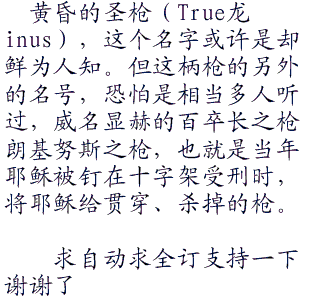 黄昏的圣枪（True龙
inus），这个名字或许是却
鲜为人知。但这柄枪的另外
的名号，恐怕是相当多人听
过，威名显赫的百卒长之枪
朗基努斯之枪，也就是当年
耶稣被钉在十字架受刑时，
将耶稣给贯穿、杀掉的枪。
求自动求全订支持一下
谢谢了